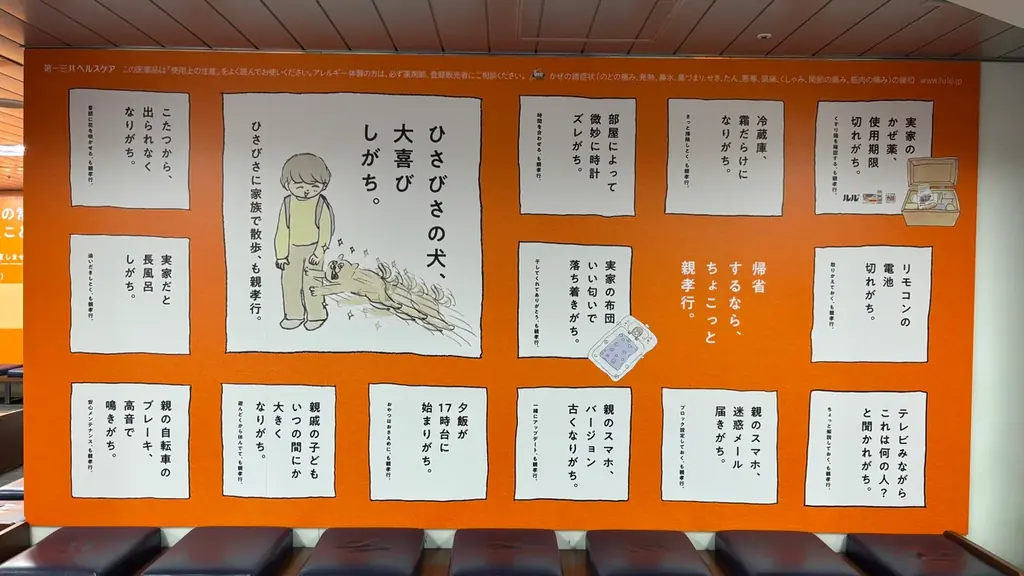 第一三共ヘルスケア この医薬品は「使用上の注意」をよく読んでお使いください。アレルギー体質の方は、必ず薬剤師、登録販売者にご相談ください。
かぜの諸症状(のどの痛み、発熱、鼻水、鼻づまり、せき、たん、悪寒、頭痛、くしゃみ、関節の痛み、筋肉の痛み)の緩和 www.lulu.jp
実家の
かぜ薬、
使用期限
切れがち。
くすり箱を確認する、も親孝行。
ルル
冷蔵庫、
霜だらけに
なりがち。
さっと掃除しとく、も親孝行。
部屋によって
微妙に時計
ズレがち。
時間を合わせる、も親孝行。
ひさびさの犬、
大喜び
しがち。
ひさびさに家族で散歩、も親孝行。
こたつから、
出られなく
なりがち。
帰省
するなら、
ちょこっと
親孝行。
リモコンの
電池
切れがち。
取りかえておく、も親孝行。
実家の布団
いい匂いで
落ち着きがち。
干してくれてありがとう、も親孝行。
実家だと
長風呂
しがち。
洗いだしとく、も親孝行。
テレビみながら
これは何の人?
と聞かれがち。
ちょっと解説しておく、も親孝行。
親のスマホ、
迷惑メール
届きがち。
ブロック設定しておく、も親孝行。
親のスマホ、
バージョン
古くなりがち。
一緒にアップデート、も親孝行。
夕飯が
17時台に
始まりがち。
おやつはおさえめに、も親孝行。
親戚の子ども
いつの間にか
大きく
なりがち。
遊んどくから休んでて、も親孝行。
親の自転車の
ブレーキ、
高音で
鳴きがち。
安心メンテナンス、も親孝行。